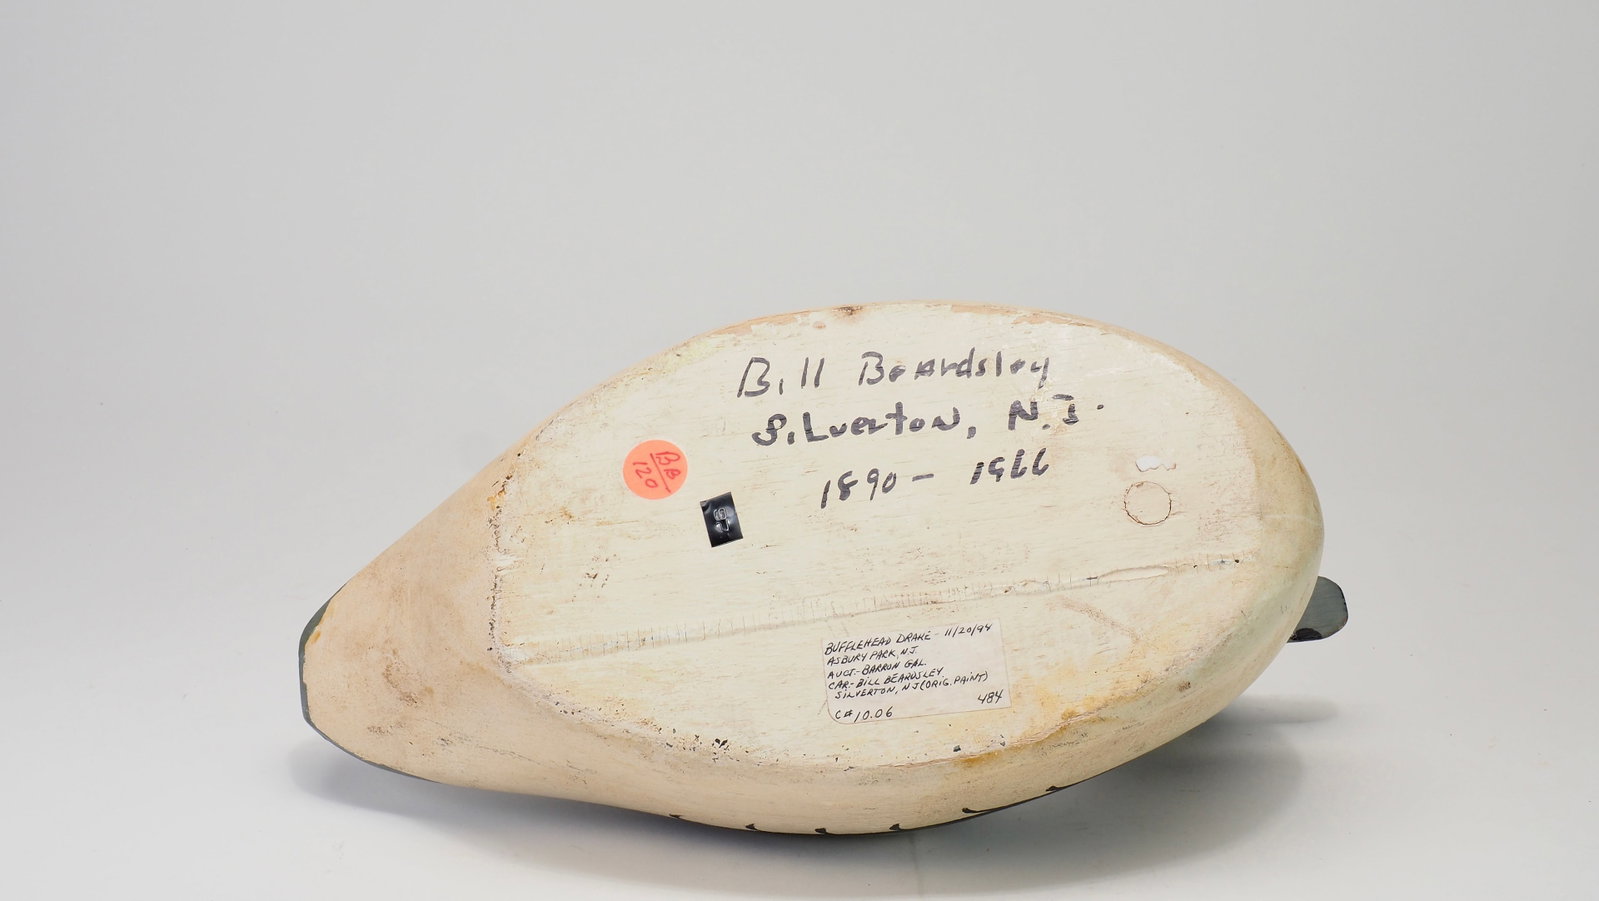 Bill Beardsley
Silverton, N.J.
1890 - 1966
BB
120
BUFFLEHEAD DRAKE - 11/20/94
ASBURY PARK, NJ
AUCT. - BARRON GAL.
CAR. - BILL BEARDSLEY
SILVERTON, NJ (ORIG. PAINT)
484
C# 10.06